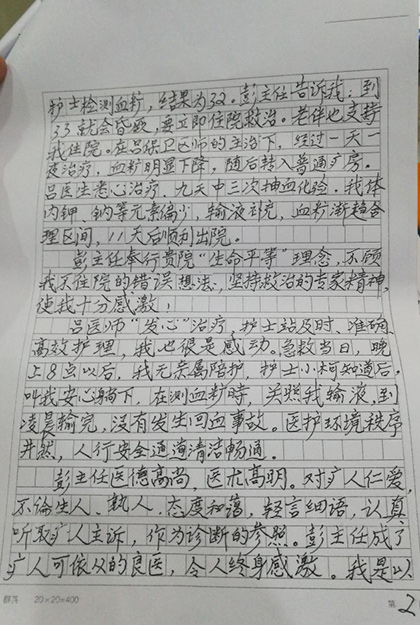 护士检测血粘，结果为32。彭主任告诉我：到
33就会昏厥，要立即住院救治。老伴也支持
我住院。在吕保卫医师的主治下，经过一天一
夜治疗，血粘明显下降，随后转入普通疒房。
吕医生悉心治疗，九天中三次抽血化验。我体
内钾，钠等元素偏少，输液补充，血粘渐趋合
理区间，11天后顺利出院。
彭主任奉行贵院“生命平等”理念，不顾
我不住院的错误想法，坚持救治的专家精神，
使我十分感激！
吕医师“发心”治疗，护士站及时、准确，
高效护理，我也很是感动。急救当日，晚
上8点以后，我无亲属陪护，护士小柯知道后，
叫我安心躺下，在测血粘时，关照我输液，到
凌晨输完，没有发生回血事故。医护环境秩序
井然，人行安全通道清洁畅通。
彭主任医德高尚，医术高明。对疒人仁爱，
不论生人、熟人，态度和蔼，轻言细语，认真
听取疒人主诉，作为诊断的参照。彭主任成了
疒人可依从的良医，令人终身感激。我是以
20×20=400
第2